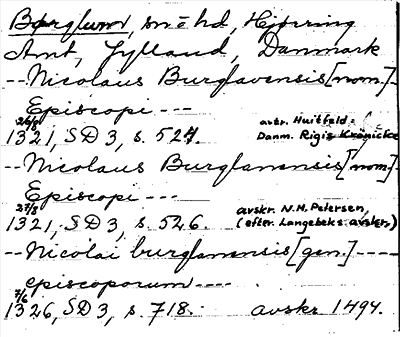 Børglum, sn o hd, Hjørring
Amt, Jylland, Danmark
--Nicolaus Burglavensis [nom.]-
Episcopi ---
26/8 avtr. Huitfeld:
1321, SD 3, s. 524. Danm. Rigis Krönicke
--Nicolaus Burglanensis [nom]-
Episcopi ---
27/8 avskr. N.M. Petersen,
1321, SD 3, s. 526. (eftr. Langebeks avskr.)
--Nicolai burglanensis [gen.] ----
episcoporum ----
7/6
1326, SD 3, s. 718. avskr. 1494.